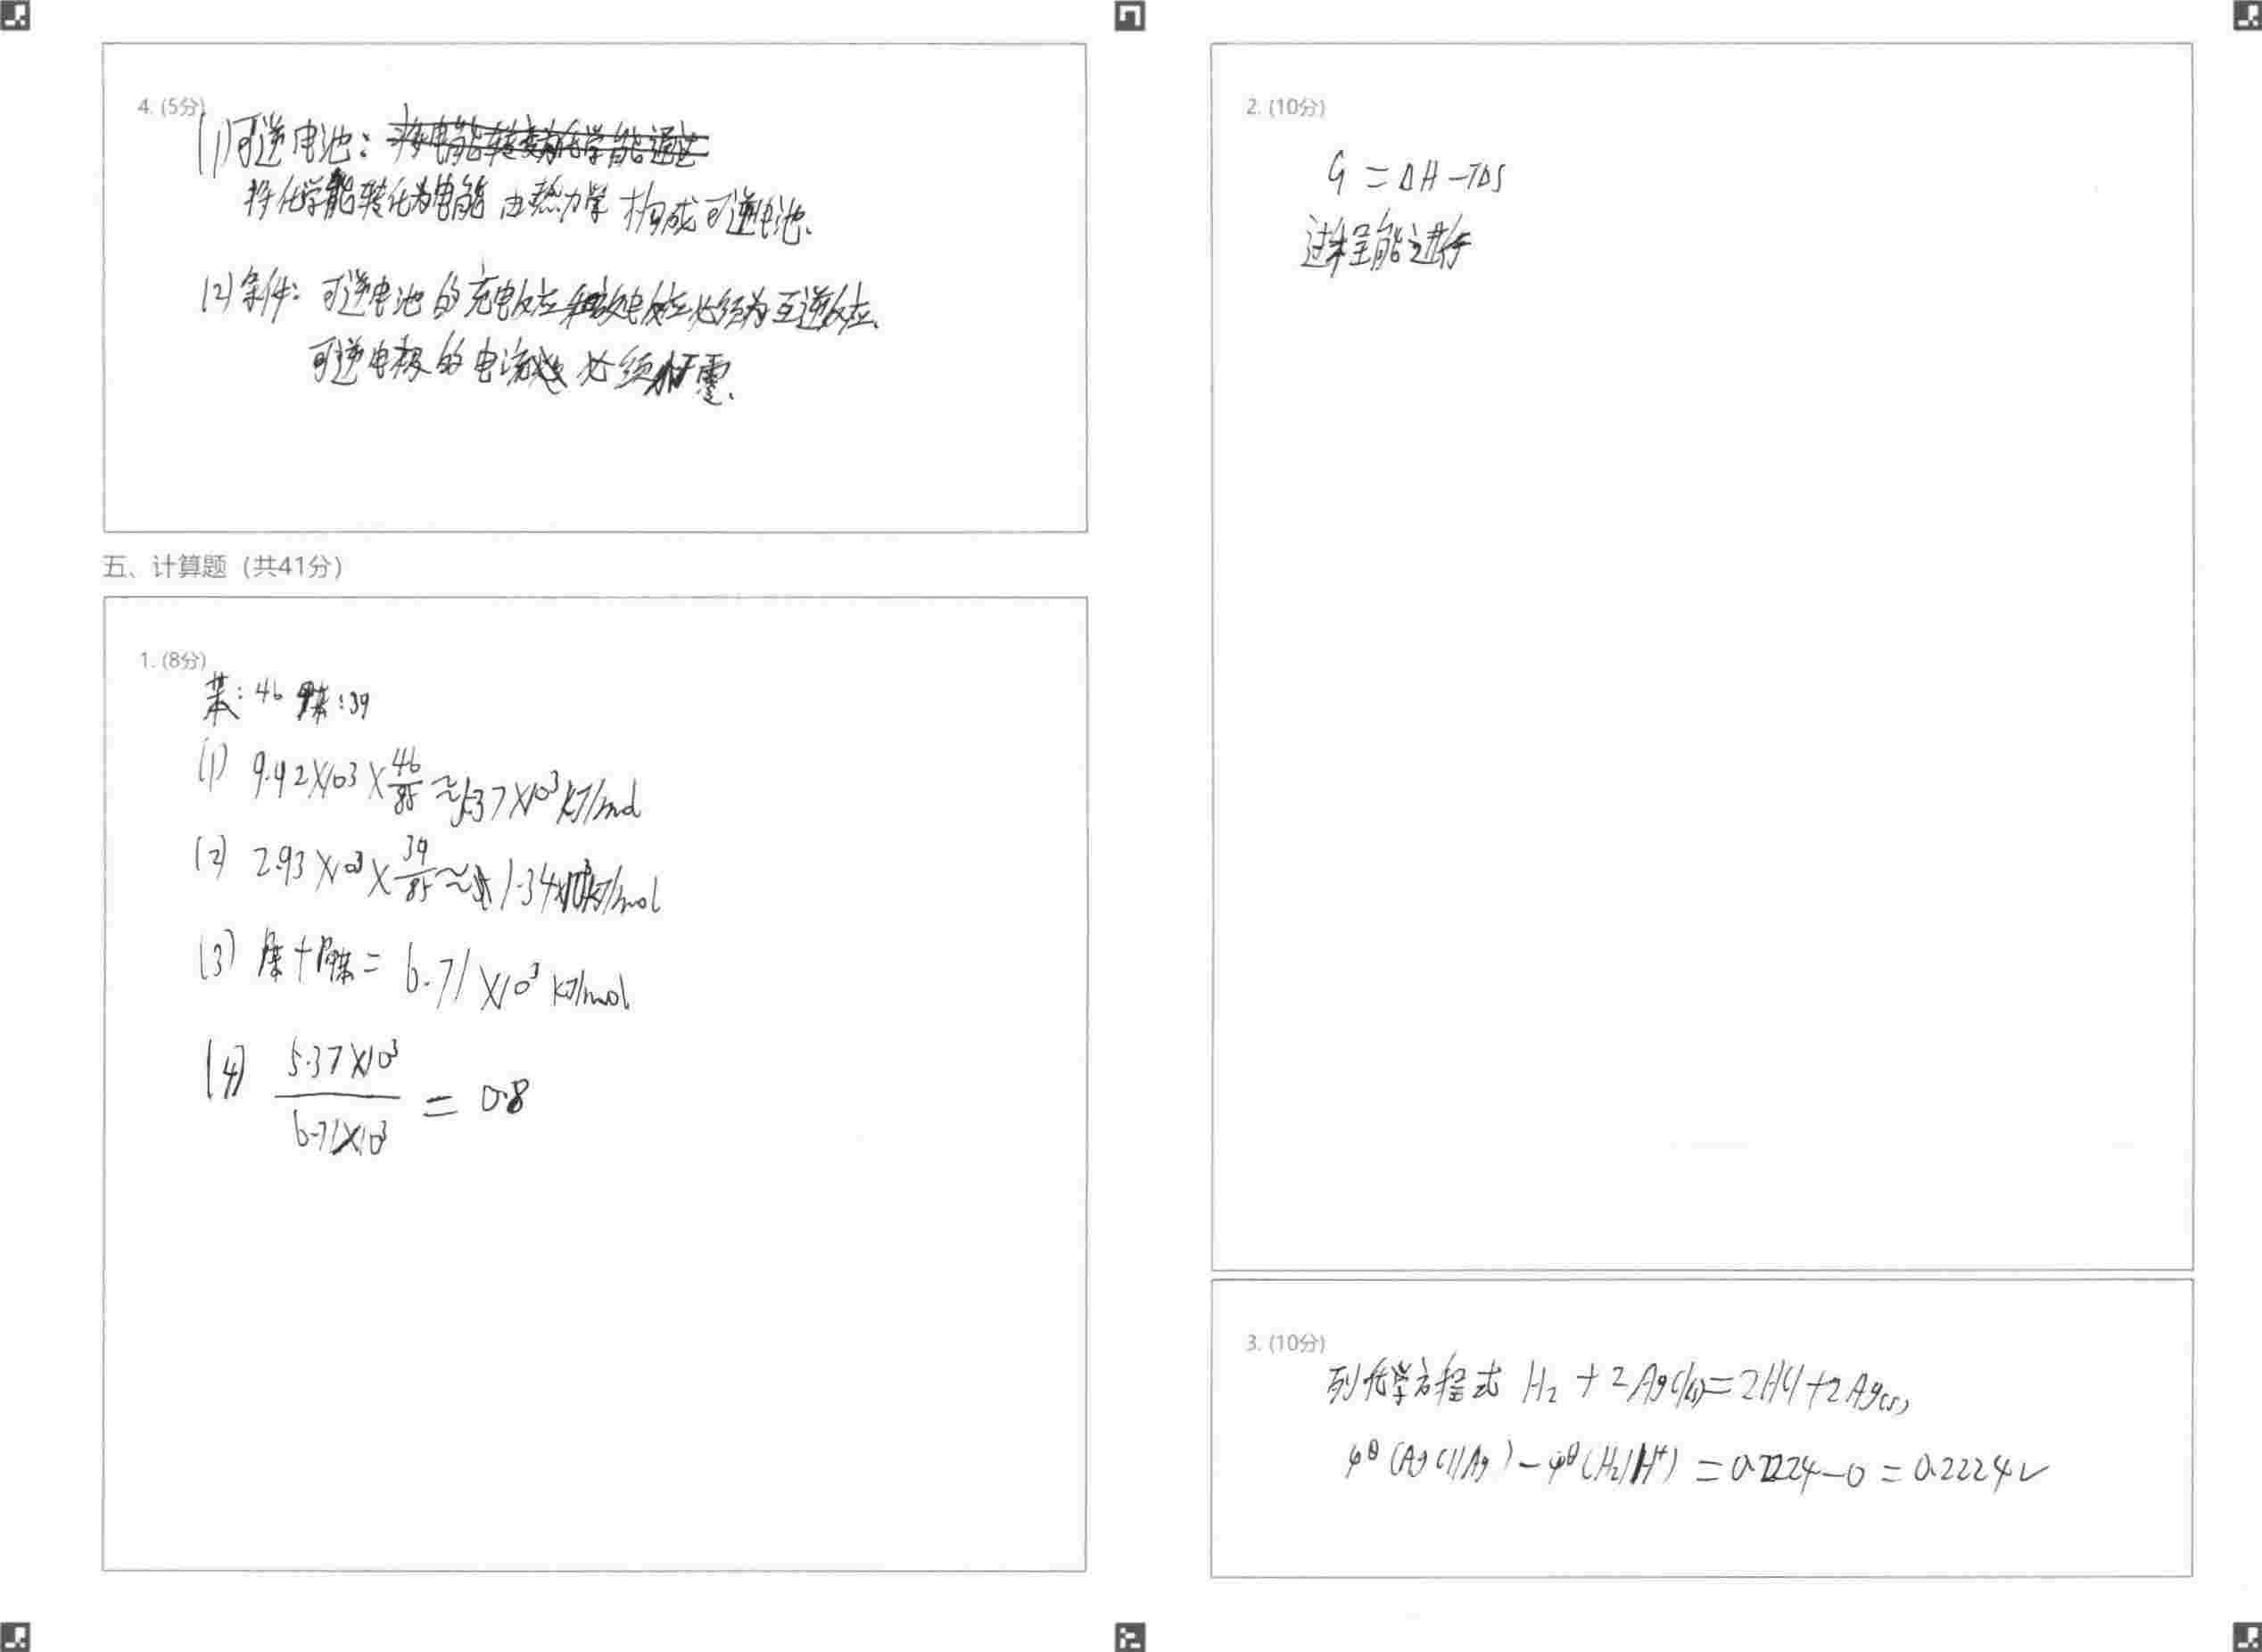 4. (5分)
(1) 可逆电池:
将化学能转化为电能 由热力学构成可逆电池.
(2) 条件: 可逆电池的充电反应和放电反应必须为互逆反应.
可逆电极的电流 必须 零.
五、计算题 (共41分)
1. (8分)
苯: 46 甲苯: 39
(1) 9.92×10³ × 46/85 ≈ 5.37×10³ kJ/mol
(2) 2.93×10³ × 39/85 ≈ 1.34×10³ kJ/mol
(3) 苯+甲苯 = 6.71×10³ kJ/mol
(4) 5.37×10³ / 6.71×10³ = 0.8
2. (10分)
G = ΔH - TΔS
过程能进行
3. (10分)
列化学方程式 H₂ + 2AgCl(s) = 2HCl + 2Ag(s)
φ^θ (AgCl/Ag) - φ^θ (H₂/H⁺) = 0.2224 - 0 = 0.2224 V